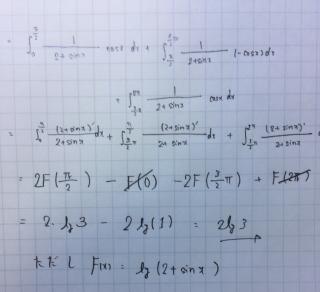 = ∫_0^{π/2} 1/(2+sinx) cosx dx + ∫_{π/2}^{3/2 π} 1/(2+sinx) (-cosx)dx
+ ∫_{3/2 π}^{2π} 1/(2+sinx) cosx dx
= ∫_0^{π/2} (2+sinx)'/(2+sinx) dx + ∫_{3/2 π}^{π/2} (2+sinx)'/(2+sinx) dx + ∫_{3/2 π}^{2π} (2+sinx)'/(2+sinx)
= 2F(π/2) - F(0) - 2F(3/2 π) + F(2π)
= 2·log3 - 2log(1) = 2log3
ただし F(x) = log(2+sinx)